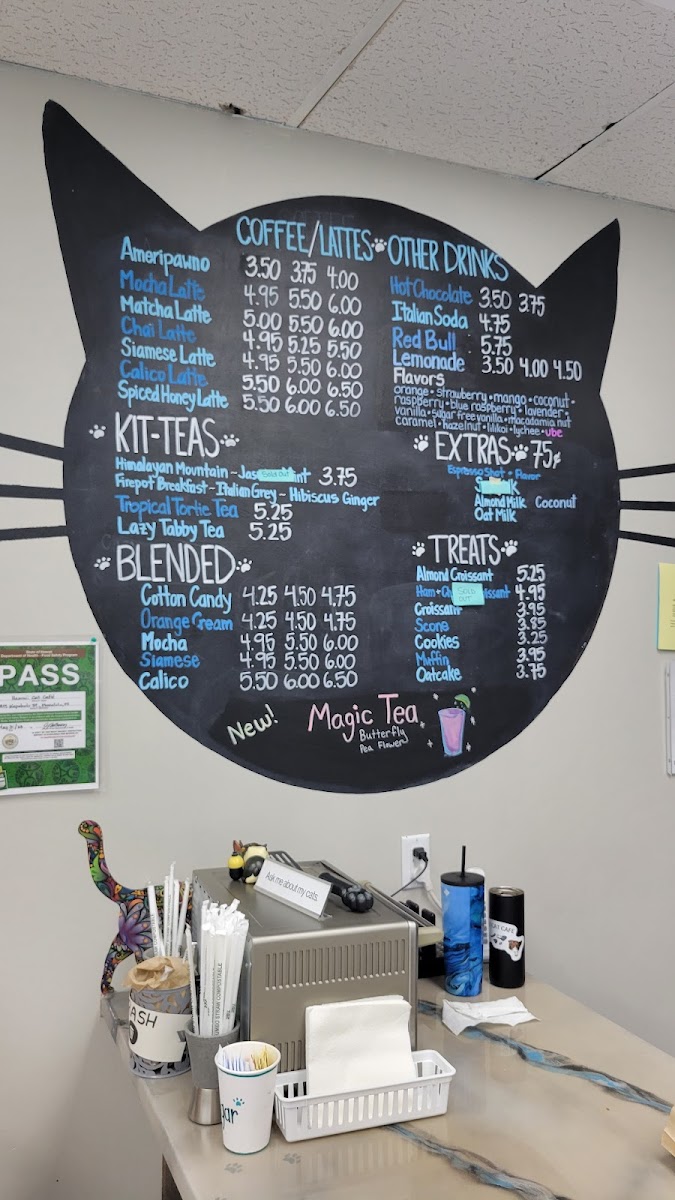 COFFEE/LATTES OTHER DRINKS
Ameripawno 3.50 3.75 4.00
Mocha Latte 4.95 5.50 6.00
Matcha Latte 5.00 5.50 6.00
Chai Latte 4.95 5.25 5.50
Siamese Latte 4.95 5.50 6.00
Calico Latte 5.50 6.00 6.50
Spiced Honey Latte 5.50 6.00 6.50
Hot Chocolate 3.50 3.75
Italian Soda 4.75
Red Bull 5.75
Lemonade 3.50 4.00 4.50
Flavors
orange • strawberry • mango • coconut •
raspberry • blue raspberry • lavender •
vanilla • sugar free vanilla • macadamia nut
caramel • hazelnut • lilikoi • lychee • ube
KIT-TEAS
Himalayan Mountain ~ Jas Sold out int 3.75
Firepot Breakfast ~ Italian Grey ~ Hibiscus Ginger
Tropical Tortie Tea 5.25
Lazy Tabby Tea 5.25
EXTRAS 75¢
Espresso Shot • Flavor
Almond Milk Coconut
Oat Milk
BLENDED
Cotton Candy 4.25 4.50 4.75
Orange Cream 4.25 4.50 4.75
Mocha 4.95 5.50 6.00
Siamese 4.95 5.50 6.00
Calico 5.50 6.00 6.50
TREATS
Almond Croissant 5.25
Ham + Ch SOLD OUT issant 4.95
Croissant 3.95
Scone 3.85
Cookies 3.25
Muffin 3.95
Oatcake 3.75
New!
Magic Tea
Butterfly
Pea Flower
State of Hawaii
Department of Health - Food Safety Program
PASS
Ask me about my cats
CAT CAFE
CASH
gar